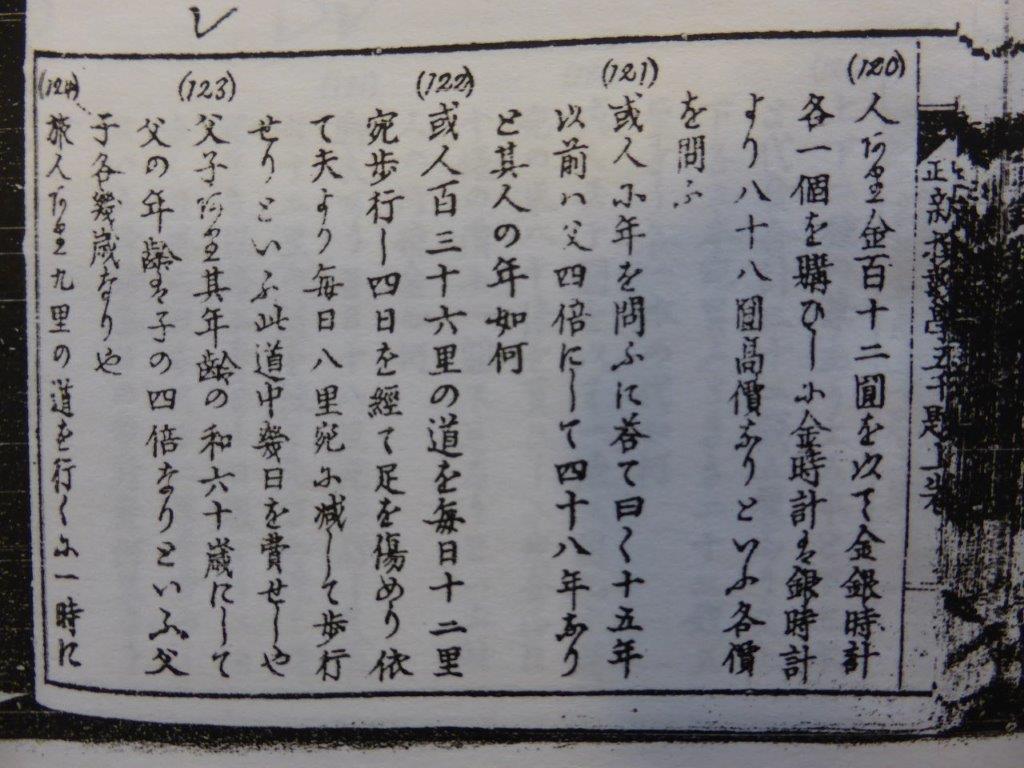 正新撰數學五千題上巻
(120) 人あり金百十二圓を以て金銀時計
各一個を購ひしに金時計は銀時計
より八十八圓高價なりといふ各價
を問ふ
(121) 或人に年を問ふに荅て曰く十五年
以前ハ父四倍にして四十八年なり
と其人の年如何
(122) 或人百三十六里の道を毎日十二里
宛歩行し四日を經て足を傷めり依
て夫より毎日八里宛に减して歩行
せりといふ此道中幾日を費せしや
(123) 父子あり其年齢の和六十歳にして
父の年齢は子の四倍なりといふ父
子各幾歳なりや
(124) 旅人あり九里の道を行くに一時に